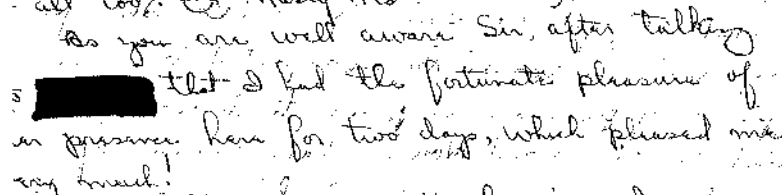 As you are well aware Sir, after talking
that I had the fortunate pleasure of
presence here for two days, which pleased me
much!